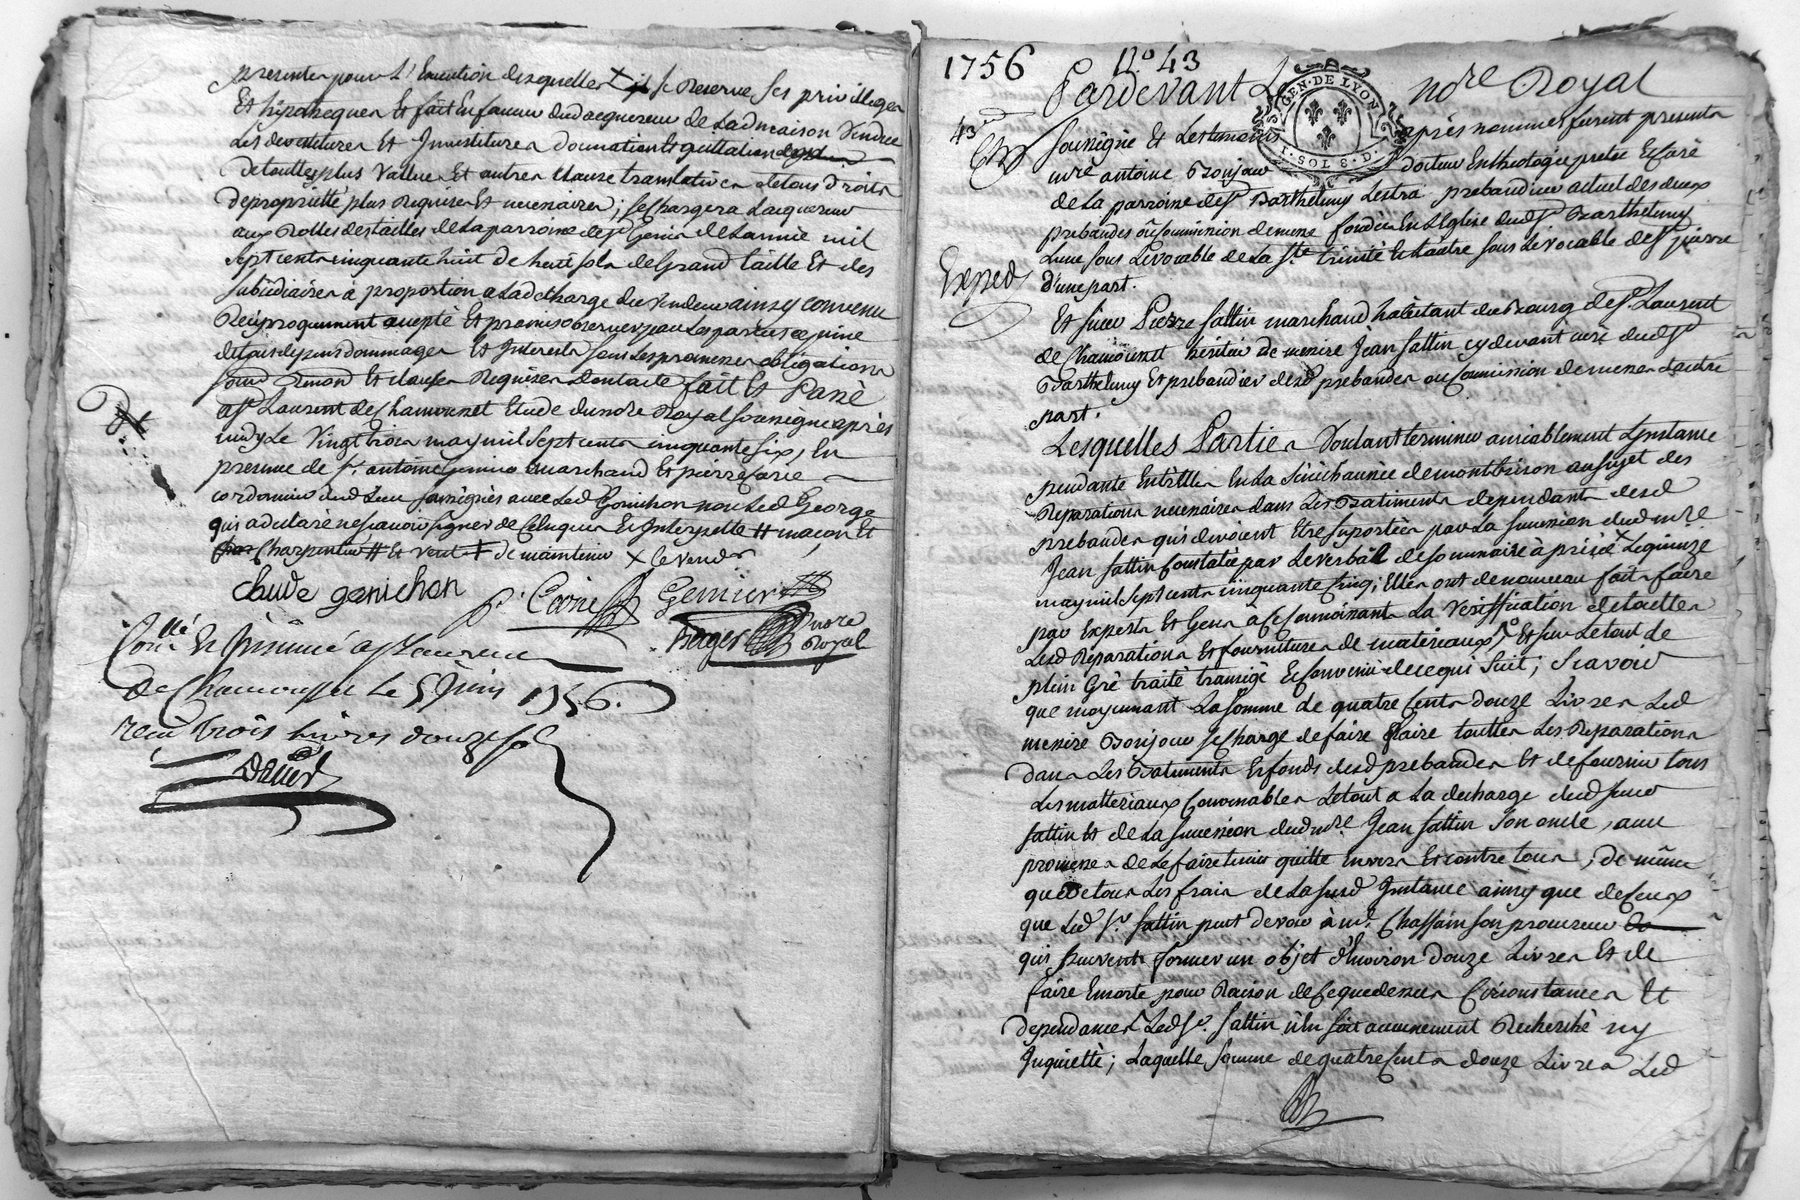 presente pour L'Execution desquelles + il se Reserve ses privilleges
Et hipotecques Et fait en faveur dud acquereur de Ladmaison Vendue
Les devetitures Et Investitures donnation Et quittation
De touttes plus Vallues Et autres clauses translatives de tous droits
De proprietté plus Requises Et necessaires ; se chargera Lacquereur
aux Rolles des tailles de La parroisse de st Genis de Lannée mil
sept cents cinquante huit de huit sols de Grand taille Et des
subcidiaires a proportion a La decharge du Vendeur ainsy convenu
Reciproquement accepté Et promis observer par Les parties a peine
de tous depens dommages Et Interests sous Les promesses obligations
soum Renon Et clauses Requises dont acte fait Et Passé
a st Laurent de Chamousset Etude du nore Royal soussigné apres
midy Le Vingt trois may mil sept cents cinquante six, En
presence de sr. antoine Genier marchand Et pierre Carie
cordonnier dud Lieu soussignés avec Led Gonichon non Led George
qui a declaré ne sçavoir signer de ce Enquis Et Interpellé # maçon Et
Charpentier # Et Veut + de maintenir x Le Vendr
claude gonichon
p. Carie Genier
Roger nore
Royal
Conllé Et Insinué a st Laurent
De Chamousset le 5 Juin 1756.
reçu trois livres douze sols
David
1756 No. 43
Pardevant Le nore Royal
GEN. DE LYON
I. SOL 8. D.
43e
Soussigné Et Les temoins apres nommes furent presents
mre antoine Bonjour docteur En theologie pretre Et curé
de La parroisse de st Barthelemy Lestra prebandier actuel des deux
prebandes ou Commission de messes fondées En L'Eglise dud st Barthelemy
Lune sous Le vocable de La Ste trinité Et Lautre sous Le vocable de st pierre
Exped
d'une part.
Et sieur Pierre sattin marchand habitant du Bourg de st Laurent
de Chamousset heritier de messire Jean sattin cy devant curé dud st
Barthelemy Et prebandier desd prebandes ou Commission de messes dautre
part.
Lesquelles Parties Voulant terminer amiablement Lynstance
pendante Entrelles En La Sénéchaussée de montbrison au sujet des
Reparations necessaires dans Les Batiments dependants desd
prebandes qui devoient Etre suportées par La succession dud mre
Jean sattin Constatée par Le verbal de sommaire à prise Le quinze
may mil sept cents cinquante Cinq ; Elles ont de nouveau fait faire
par Experts Et Gens a ce Connoissant La Veriffication de touttes
Lesd Reparations Et fourniture de materiaux, Et sur Le tout de
plein Gré traité transigé Et Convenu de ce qui suit ; scavoir
que moyennant La somme de quatre Cents douze Livres Led
messire Bonjour se charge de faire faire touttes Les Reparations
dans Les Batiments Et fonds desd prebandes Et de fournir tous
Les matteriaux Convenables Le tout a La decharge dud sieur
sattin Et de La succession dud mre Jean sattin son oncle, avec
promesse de Le faire tenir quitte Envers Et contre tous, de même
que de tous Les frais de La susd Instance ainsy que de Ceux
que Led sr. sattin peut devoir à me. Chassain son procureur
qui peuvent former un objet d'Environ douze Livres Et de
faire Ensorte pour Raison de Ce que dessus Circonstances Et
dependances Led sr. sattin n'En soit aucunement Recherché ny
Inquietté ; Laquelle somme de quatre Cents douze Livres Led